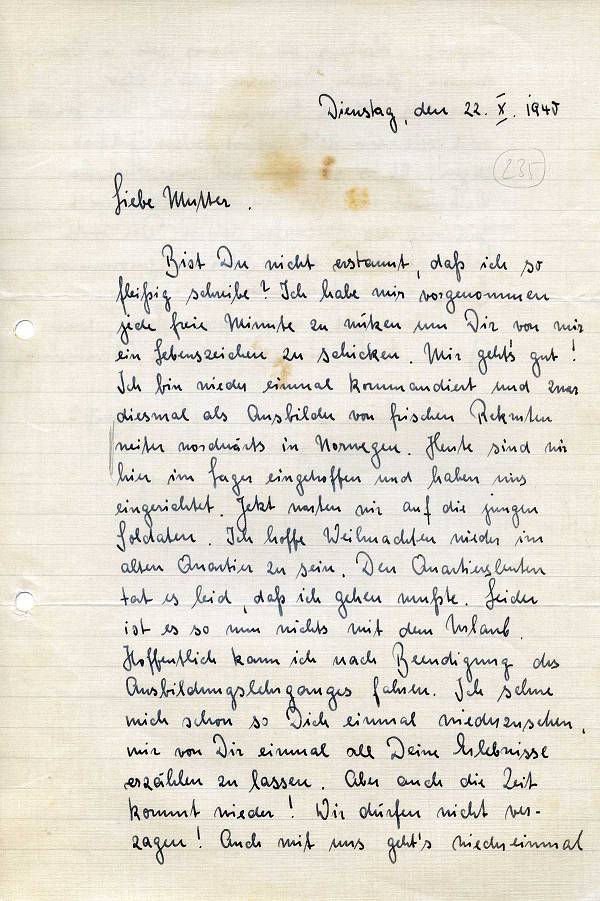 Dienstag, den 22. X. 1940
235
Liebe Mutter.
Bist Du nicht erstaunt, daß ich so
fleißig schreibe? Ich habe mir vorgenommen
jede freie Minute zu nützen um Dir von mir
ein Lebenszeichen zu schicken. Mir geht's gut!
Ich bin wieder einmal kommandiert und zwar
diesmal als Ausbilder von frischen Rekruten
weiter nordwärts in Norwegen. Heute sind wir
hier im Lager eingetroffen und haben uns
eingerichtet. Jetzt warten wir auf die jungen
Soldaten. Ich hoffe Weihnachten wieder im
alten Quartier zu sein. Den Quartiersleuten
tat es leid, daß ich gehen mußte. Leider
ist es so nun nichts mit dem Urlaub.
Hoffentlich kann ich nach Beendigung des
Ausbildungslehrganges fahren. Ich sehne
mich schon so Dich einmal wiederzusehen,
mir von Dir einmal all Deine Erlebnisse
erzählen zu lassen. Aber auch die Zeit
kommt wieder! Wir dürfen nicht ver-
zagen! Auch mit uns geht's wiedereinmal